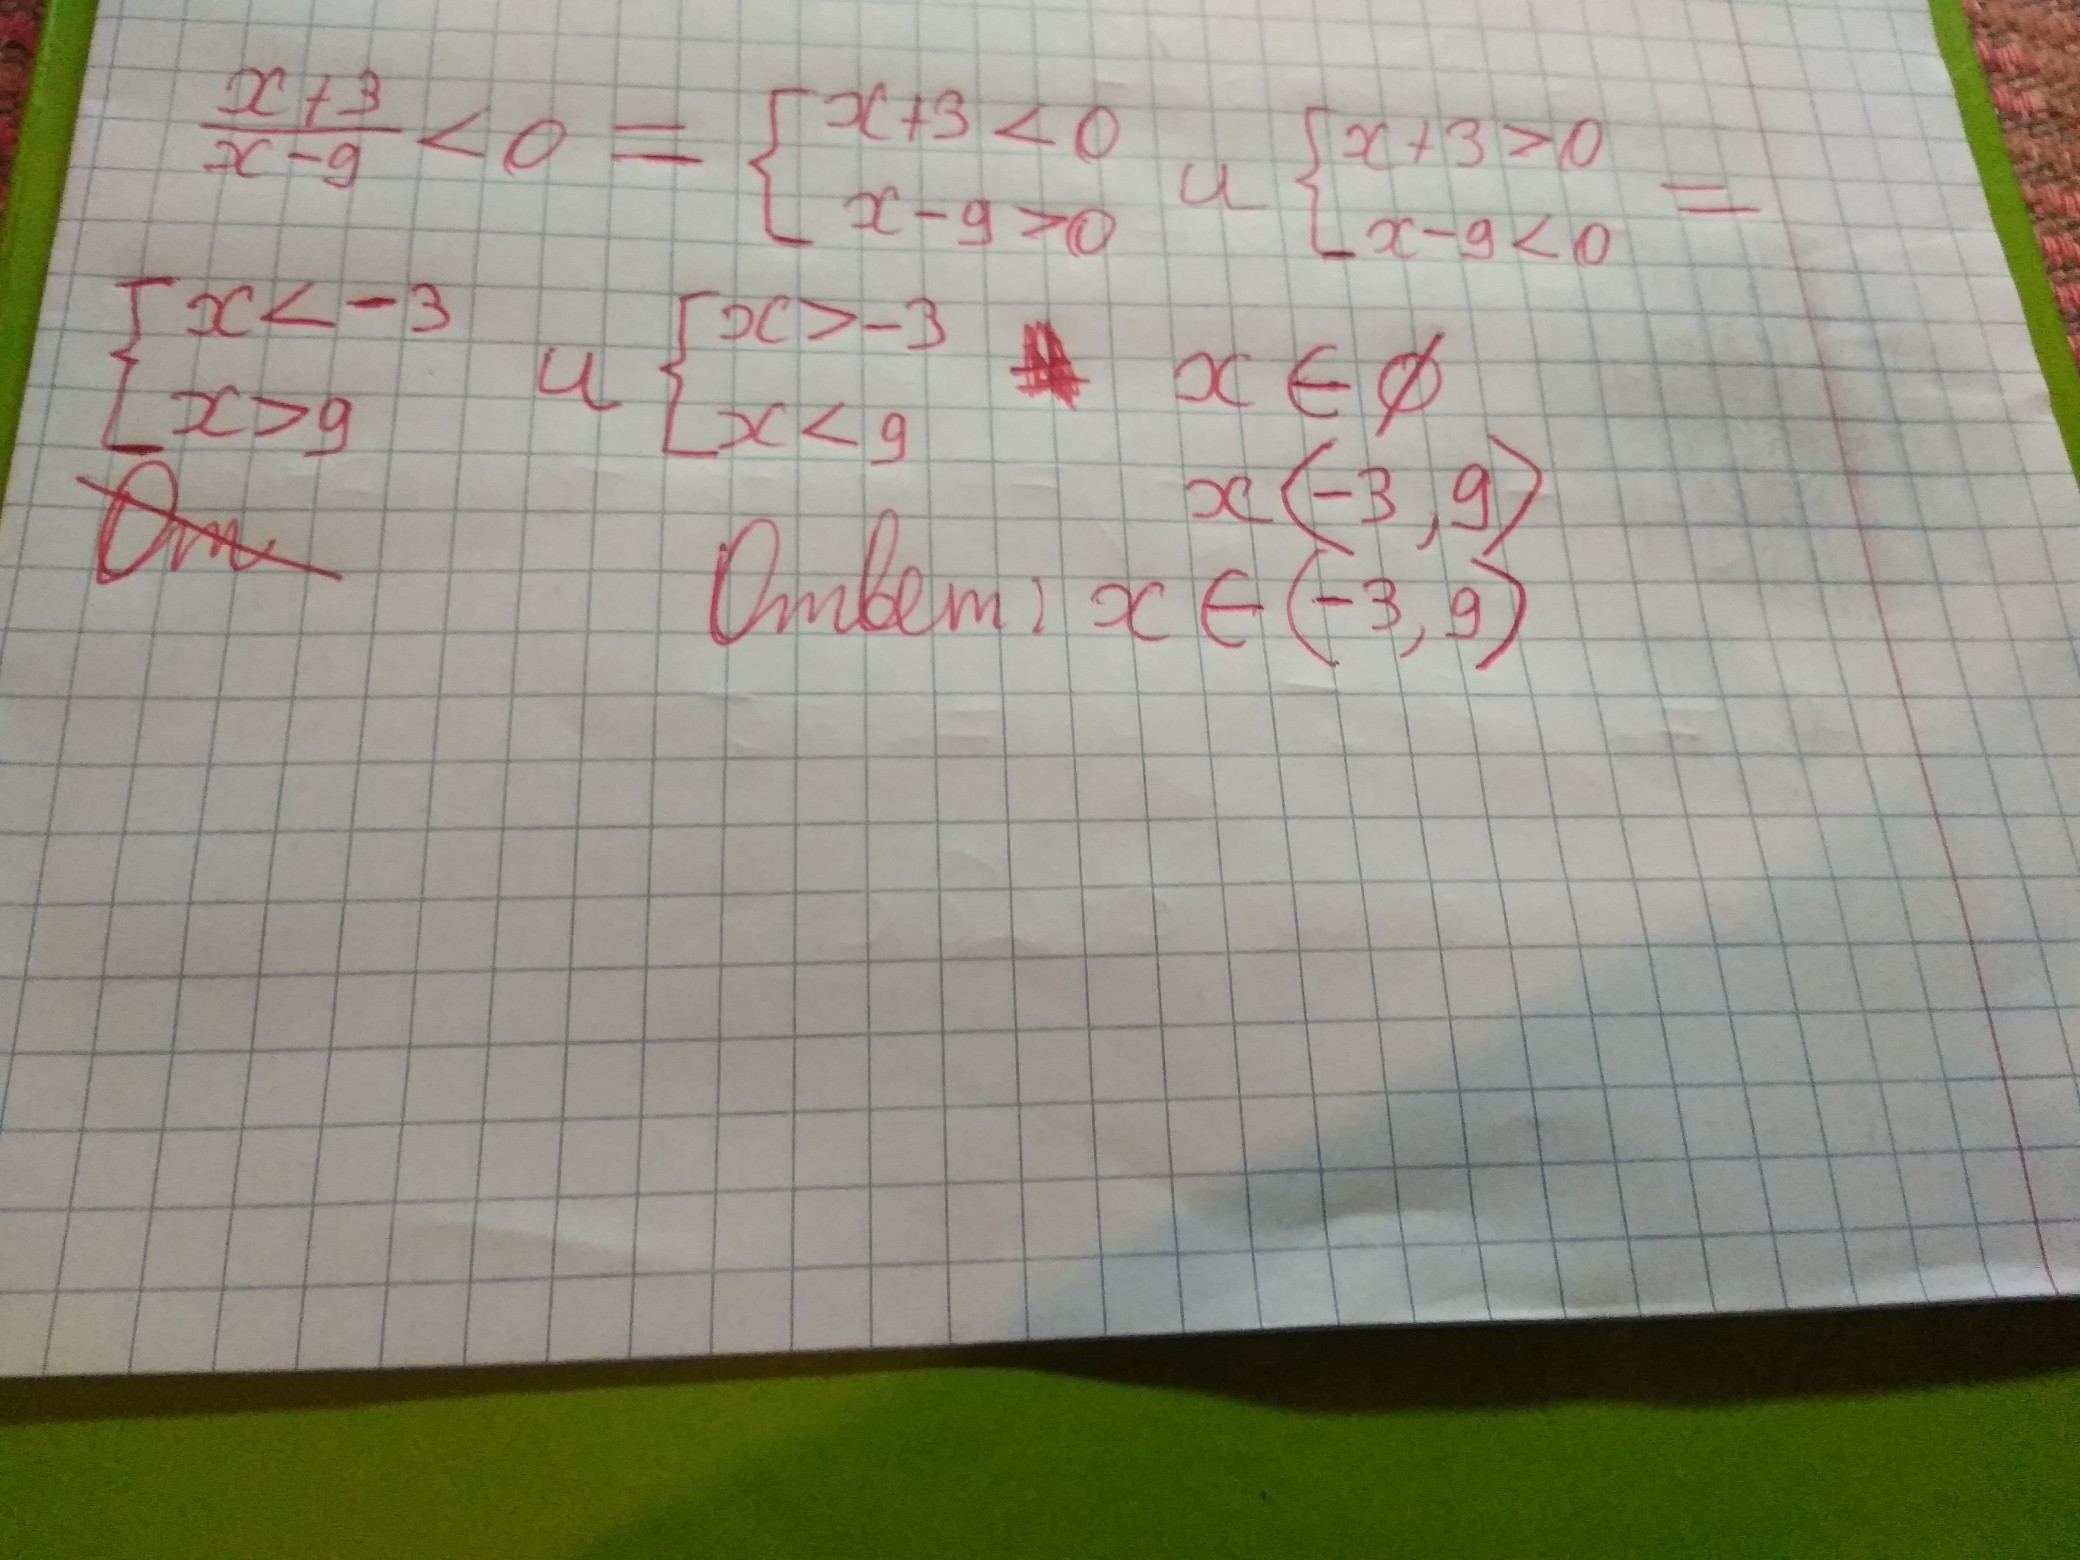 x+3/x-9 < 0 = { x+3 < 0 x-9 > 0 и { x+3 > 0 x-9 < 0 =
{ x < -3 x > 9 и { x > -3 x < 9 x ∈ ∅
x (-3, 9)
Ответ: x ∈ (-3, 9)